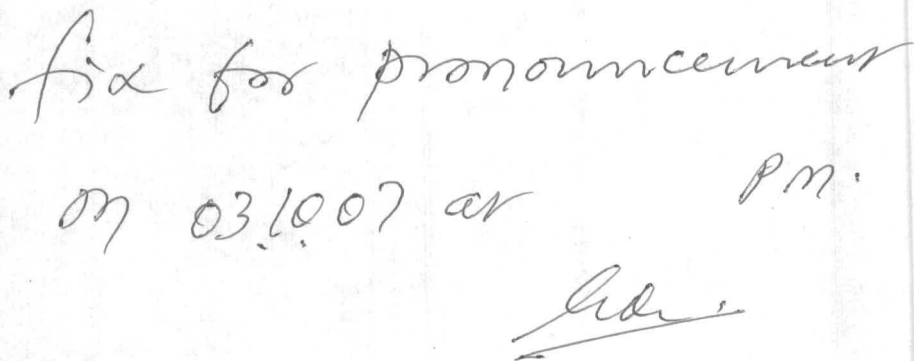 fix for pronouncement
on 03.10.07 at P.M.